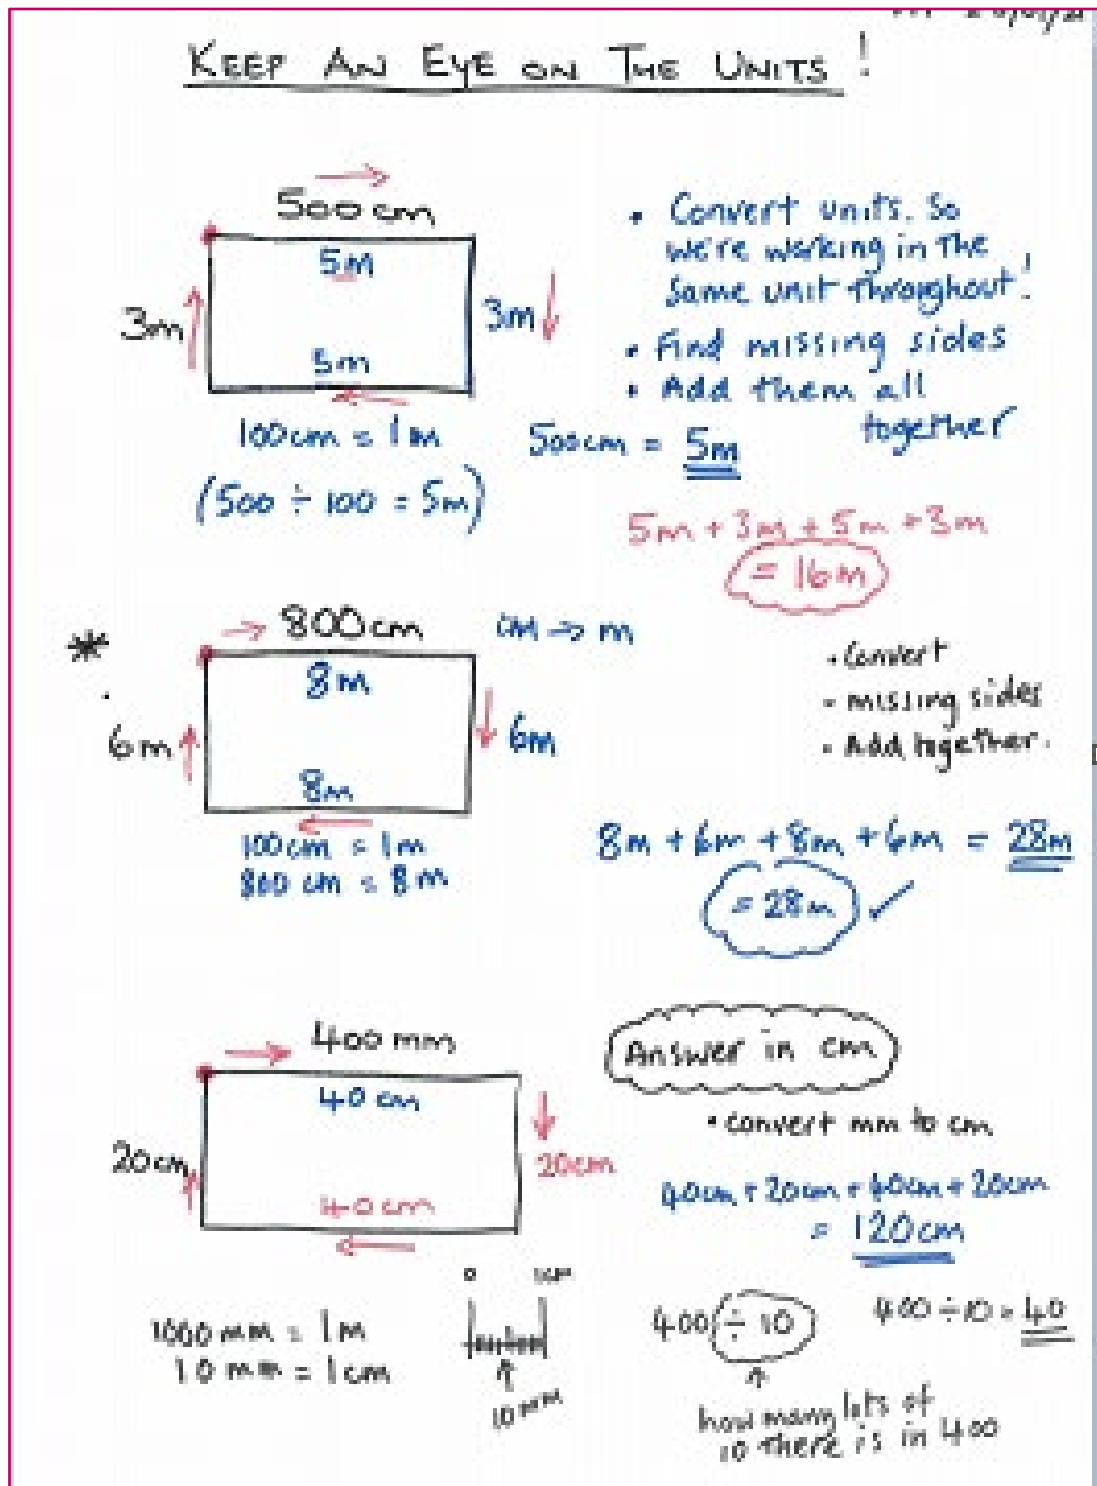 KEEP AN EYE ON THE UNITS !
500cm
5m
3m
3m
5m
• Convert units. So
we're working in the
same unit throughout!
• Find missing sides
• Add them all
together
100cm = 1m
500cm = 5m
(500 ÷ 100 = 5m)
5m + 3m + 5m + 3m
= 16m
*
800cm
cm → m
8m
6m
6m
8m
• Convert
• missing sides
• Add together.
100cm = 1m
800 cm = 8m
8m + 6m + 8m + 6m = 28m
= 28m ✓
400 mm
40 cm
20cm
20cm
40cm
Answer in cm
• convert mm to cm
40cm + 20cm + 40cm + 20cm
= 120cm
0 1cm
10mm
1000 mm = 1m
10 mm = 1cm
400 ÷ 10
400 ÷ 10 = 40
how many lots of
10 there is in 400